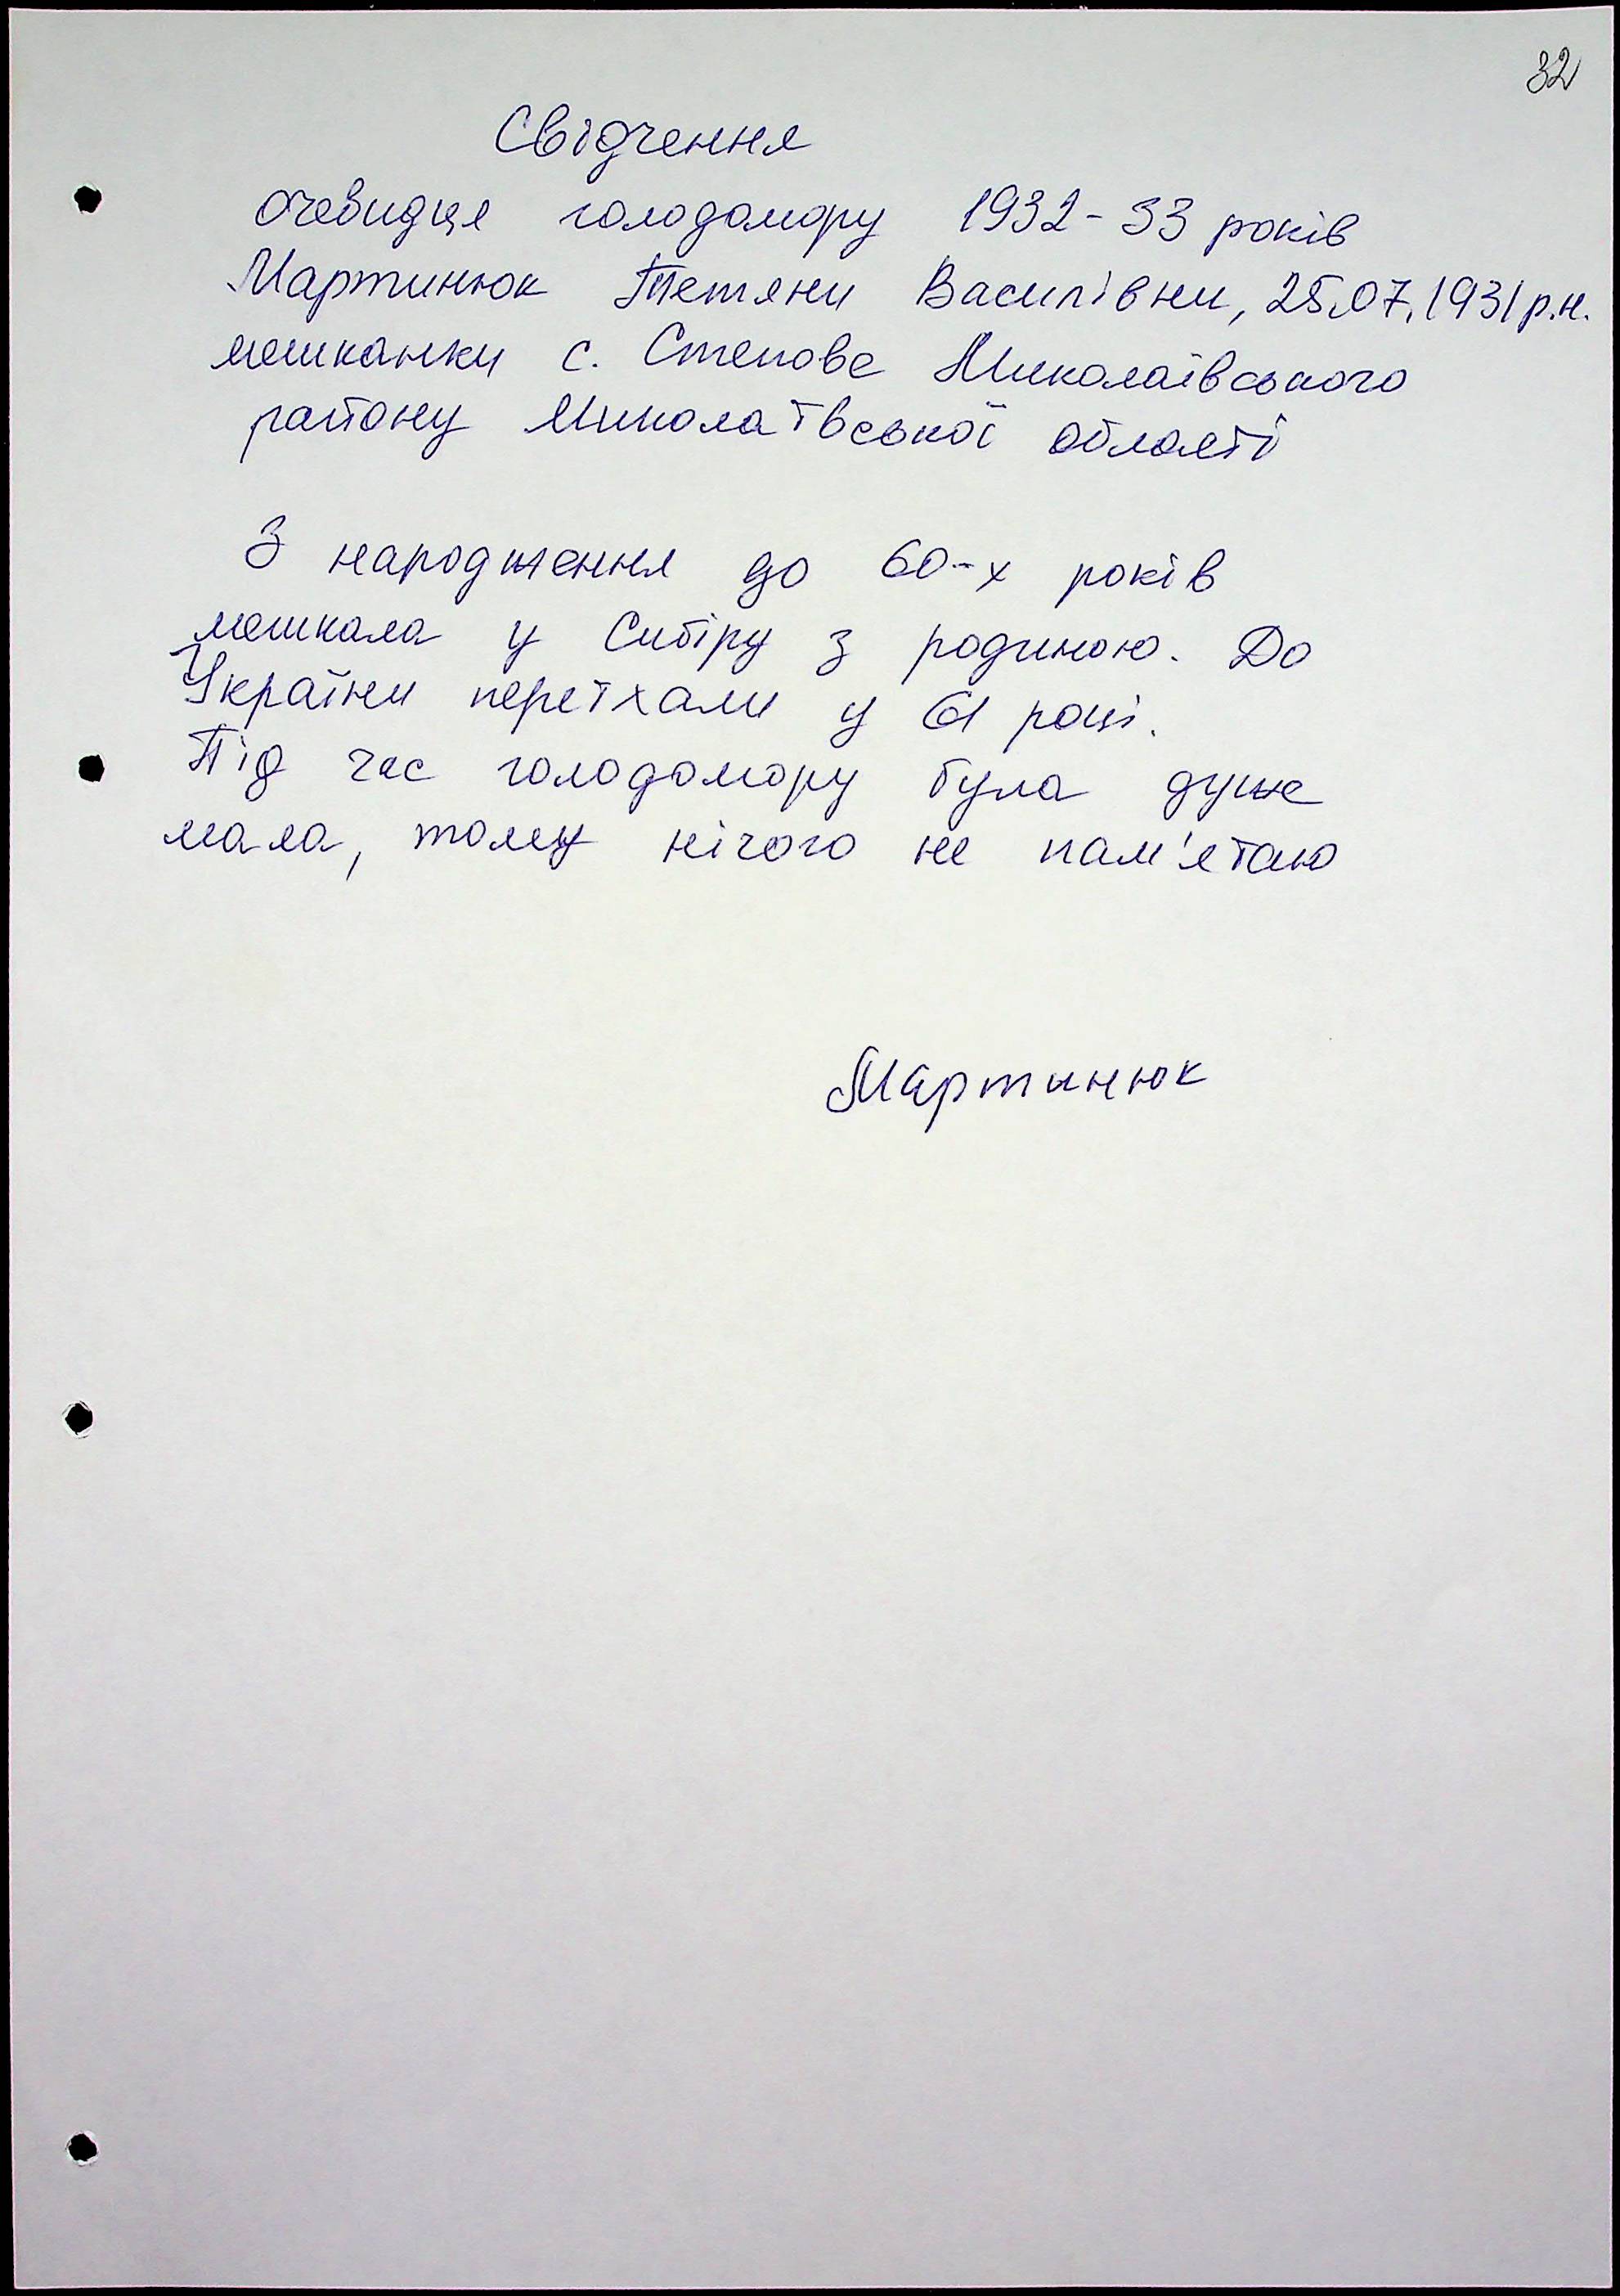 32
Свідчення
очевидця голодомору 1932-33 років
Мартинюк Тетяни Василівни, 25.07.1931 р.н.
мешканки с. Степове Миколаївського
району Миколаївської області
З народження до 60-х років
мешкала у Сибіру з родиною. До
України переїхали у 61 році.
Під час голодомору була дуже
мала, тому нічого не пам'ятаю
Мартинюк